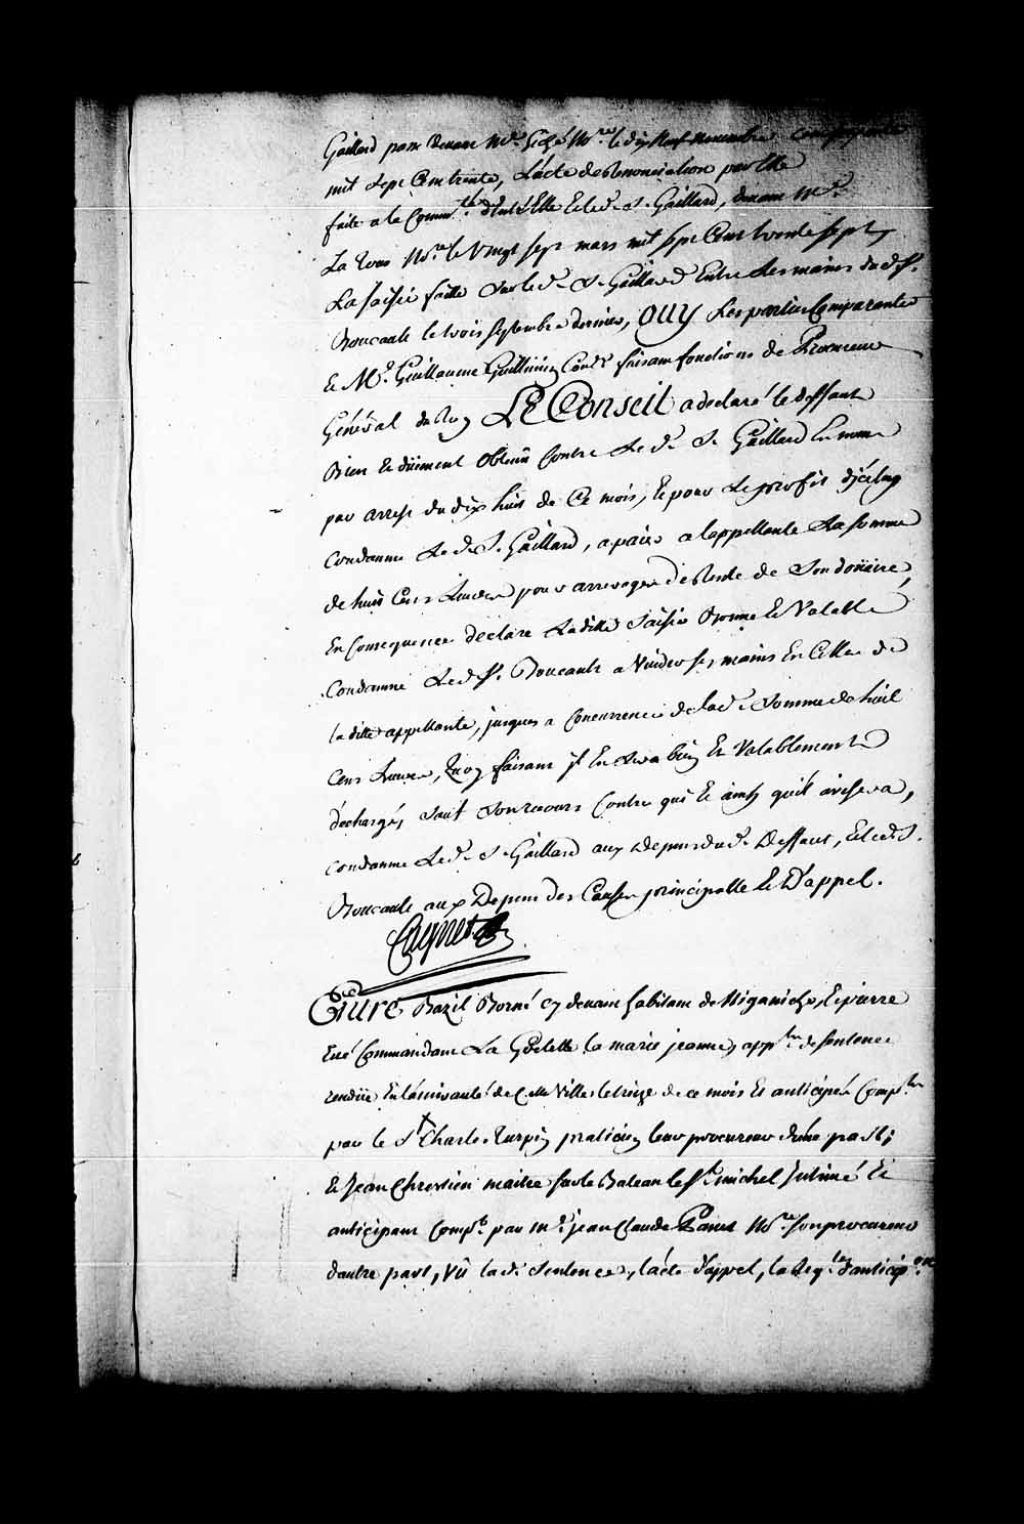 Gaillard passé devant Me. No.re le dix neuf novembre
mil sept Cent trente, L'acte de Renonciation par Elle
faite a la Comm.té d'Entr'Elle Et led. S. Gaillard, devant Me.
La Tour No.re le Vingt sept mars mil sept Cent trente sept,
La saisie faitte sur led. S. Gaillard Entre Les mains dud. Sr.
Boucault le trois septembre dernier, OUY Les parties Comparantes
Et Me. Guillaume Guillimin Con.er faisant fonctions de Procureur
Général du Roy LE Conseil a declaré le deffaut
Bien Et düement obtenu Contre Le d. S. Gaillard
par arrest du dix huit de Ce mois, Et pour Le profit d'jceluy
Condamne Le d. S. Gaillard, a paier a l'appellante La somme
de huit Cens Livres pour arrerages de Rente de Son doüaire,
En Consequence declare Laditte Saisie Bonne Et Valable
Condamne Led. Sr. Boucault a Vuider ses mains En Celles de
la ditte appellante, jusques a Concurrence de lad. Somme de huit
Cens Livres, Quoy faisant jl En sera bien Et Valablement
déchargé, sauf son recours Contre qui Et ainsy qu'il avisera,
Condamne Led. S. Gaillard aux Depens dud. Deffaut, Et led. S.
Boucault aux Depens des Causes principalle Et D'appel.
Entre Bazil Borné cy devant habitant de Niganiche, Et pierre
Commandant La Goelette la marie jeanne, app.ans de sentence
rendüe En l'amirauté de Cette Ville le treize de ce mois Et anticipés Comp.ans
par le Sr Charles Turpin praticien leur procureur d'une part;
Et Jean Chrestien maitre sur le Bateau le St. michel Jntimé Et
anticipant Comp.t par Me. jean Claude Panet No.re son procureur
d'autre part, Vû lad. Sentence, l'acte d'appel, la Req.te d'anticip.on